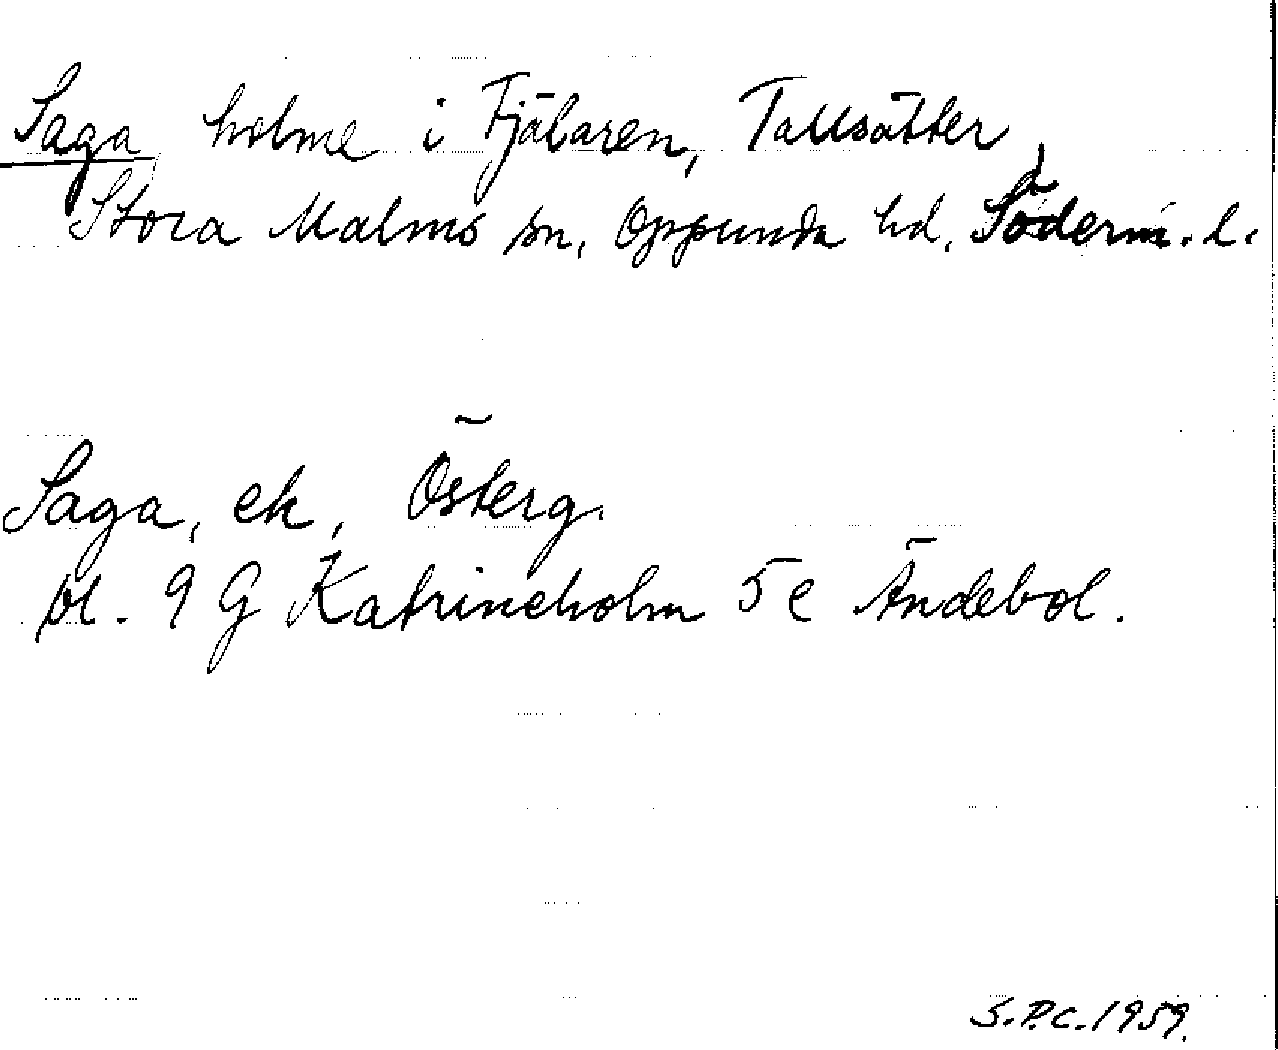 Saga, holme i Fjälaren, Tallsätter,
Stora Malms sn, Oppunda hd, Söderm. l.
Saga, ek, Österg.
bl. 9 G Katrineholm 5 e Ändebol.
S.P.C. 1959.